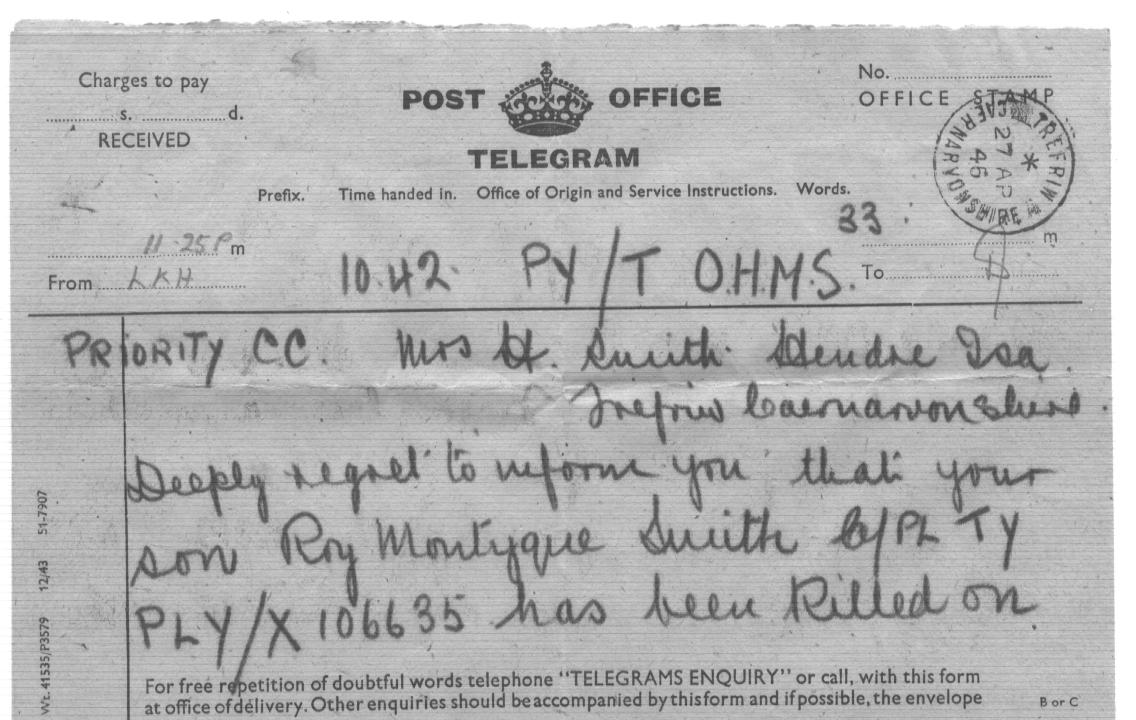 Charges to pay
s. d.
RECEIVED
POST OFFICE
TELEGRAM
No.
OFFICE STAMP
TREFRIW CAERNARVONSHIRE
27 AP
46
Prefix. Time handed in. Office of Origin and Service Instructions. Words.
33
11.25 P m
From LKH
10.42. PY/T O.H.M.S.
m
To
PRIORITY CC. Mrs H. Smith Hendre Isa.
Trefriw Caernarvonshire.
Deeply regret to inform you that your
son Roy Montyque Smith C/PL TY
PLY/X 106635 has been killed on
For free repetition of doubtful words telephone "TELEGRAMS ENQUIRY" or call, with this form
at office of delivery. Other enquiries should be accompanied by this form and if possible, the envelope
B or C
Wt. 41535/P3579 12/43 51-7907